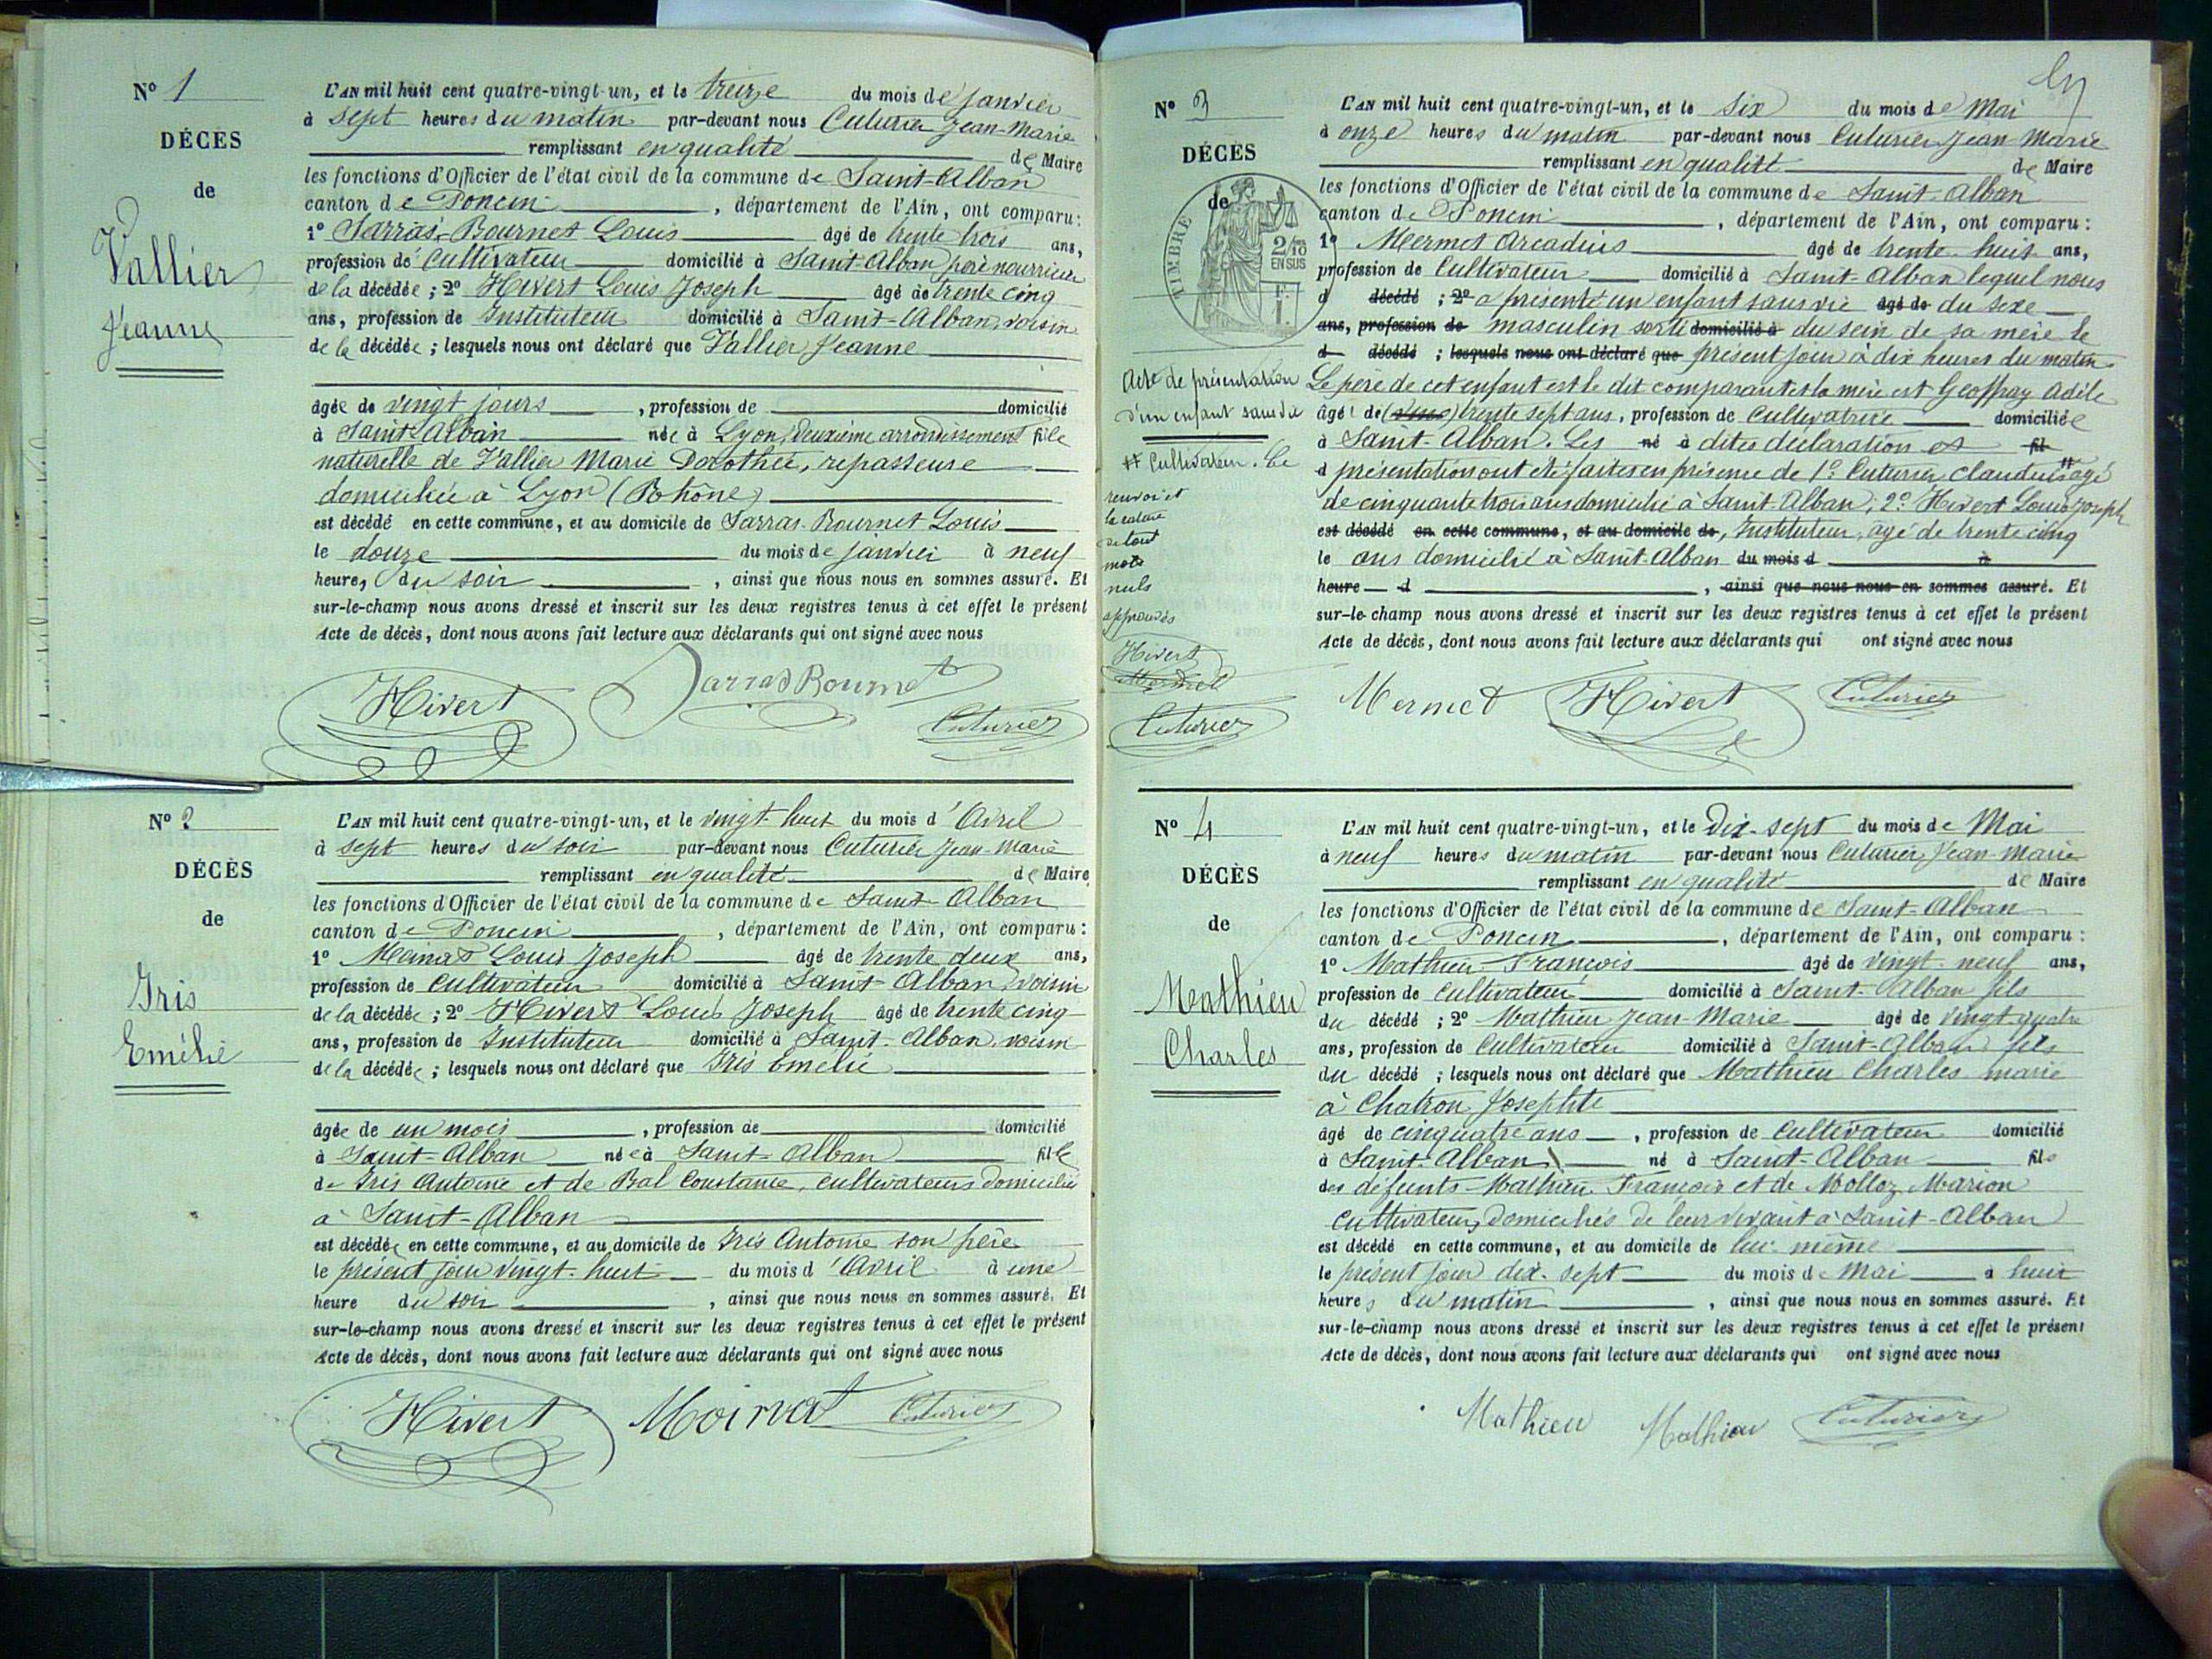 N° 1
DÉCÈS
de
Vallier
Jeanne
L'AN mil huit cent quatre-vingt-un, et le treize du mois de janvier
à sept heures du matin par-devant nous Cuturier Jean-Marie
remplissant en qualité de Maire
les fonctions d'Officier de l'état civil de la commune de Saint-Alban
canton de Poncin , département de l'Ain, ont comparu :
1° Sarras-Bournet Louis âgé de trente trois ans,
profession de Cultivateur domicilié à Saint-Alban père nourricier
de la décédée ; 2° Hivert Louis Joseph âgé de trente cinq
ans, profession de Instituteur domicilié à Saint-Alban, voisin
de la décédée ; lesquels nous ont déclaré que Vallier Jeanne
âgée de vingt jours , profession de domicilié
à Saint-Alban née à Lyon, deuxième arrondissement fille
naturelle de Vallier Marie Dorothée, repasseuse
domiciliée à Lyon (Rhône)
est décédé en cette commune, et au domicile de Sarras-Bournet Louis
le douze du mois de janvier à neuf
heures du soir , ainsi que nous nous en sommes assuré. Et
sur-le-champ nous avons dressé et inscrit sur les deux registres tenus à cet effet le présent
Acte de décès, dont nous avons fait lecture aux déclarants qui ont signé avec nous
Hivert Sarras Bournet Cuturier
N° 2
DÉCÈS
de
Iris
Emélie
L'AN mil huit cent quatre-vingt-un, et le vingt-huit du mois d'Avril
à sept heures du soir par-devant nous Cuturier Jean-Marie
remplissant en qualité de Maire
les fonctions d'Officier de l'état civil de la commune de Saint-Alban
canton de Poncin , département de l'Ain, ont comparu :
1° Moinat Louis Joseph âgé de trente deux ans,
profession de Cultivateur domicilié à Saint-Alban, voisin
de la décédée ; 2° Hivert Louis Joseph âgé de trente cinq
ans, profession de Instituteur domicilié à Saint-Alban, voisin
de la décédée ; lesquels nous ont déclaré que Iris Emélie
âgée de un mois , profession de domicilié
à Saint-Alban née à Saint-Alban fille
de Iris Antoine et de Bal Constance, cultivateurs domiciliés
à Saint-Alban
est décédée en cette commune, et au domicile de Iris Antoine son père
le présent jour vingt-huit du mois d'Avril à une
heure du soir , ainsi que nous nous en sommes assuré. Et
sur-le-champ nous avons dressé et inscrit sur les deux registres tenus à cet effet le présent
Acte de décès, dont nous avons fait lecture aux déclarants qui ont signé avec nous
Hivert Moinat Cuturier
N° 3
DÉCÈS
de
TIMBRE
2/10
EN SUS
Acte de présentation
d'un enfant sans vie
## Cultivateur. Le
renvoi et
la rature
de tout
mots
nuls
approuvés
Hivert
Mermet
Cuturier
L'AN mil huit cent quatre-vingt-un, et le Six du mois de Mai
à onze heures du matin par-devant nous Cuturier Jean-Marie
remplissant en qualité de Maire
les fonctions d'Officier de l'état civil de la commune de Saint-Alban
canton de Poncin , département de l'Ain, ont comparu :
1° Mermet Arcadius âgé de trente-huit ans,
profession de Cultivateur domicilié à Saint-Alban lequel nous
d décédé ; 2° a présenté un enfant sans vie âgé de du sexe
ans, profession de masculin sorti domicilié à du sein de sa mère le
d décédé ; lesquels nous ont déclaré que présent jour à dix heures du matin.
Le père de cet enfant est le dit comparant et la mère est Geoffray Adèle
âgée de trente sept ans, profession de Cultivatrice domiciliée
à Saint-Alban. Les né à dites déclaration et fil
d présentation ont été faites en présence de 1° Cuturier Claudius ## âgé
de cinquante trois ans domicilié à Saint-Alban ; 2° Hivert Louis Joseph
est décédé en cette commune, et au domicile de, Instituteur, âgé de trente cinq
le ans domicilié à Saint-Alban du mois d à
heure d , ainsi que nous nous en sommes assuré. Et
sur-le-champ nous avons dressé et inscrit sur les deux registres tenus à cet effet le présent
Acte de décès, dont nous avons fait lecture aux déclarants qui ont signé avec nous
Mermet Hivert Cuturier
N° 4
DÉCÈS
de
Mathieu
Charles
L'AN mil huit cent quatre-vingt-un, et le Dix-sept du mois de Mai
à neuf heures du matin par-devant nous Cuturier Jean-Marie
remplissant en qualité de Maire
les fonctions d'Officier de l'état civil de la commune de Saint-Alban
canton de Poncin , département de l'Ain, ont comparu :
1° Mathieu François âgé de vingt-neuf ans,
profession de Cultivateur domicilié à Saint-Alban fils
du décédé ; 2° Mathieu Jean-Marie âgé de vingt-quatre
ans, profession de Cultivateur domicilié à Saint-Alban fils
du décédé ; lesquels nous ont déclaré que Mathieu Charles marié
à Chatron Josephte
âgé de cinquante ans , profession de Cultivateur domicilié
à Saint-Alban né à Saint-Alban fils
des défunts Mathieu François et de Molloz Marion
Cultivateurs, domiciliés de leur vivant à Saint-Alban
est décédé en cette commune, et au domicile de lui-même
le présent jour dix-sept du mois de Mai à huit
heures du matin , ainsi que nous nous en sommes assuré. Et
sur-le-champ nous avons dressé et inscrit sur les deux registres tenus à cet effet le présent
Acte de décès, dont nous avons fait lecture aux déclarants qui ont signé avec nous
Mathieu Mathieu Cuturier